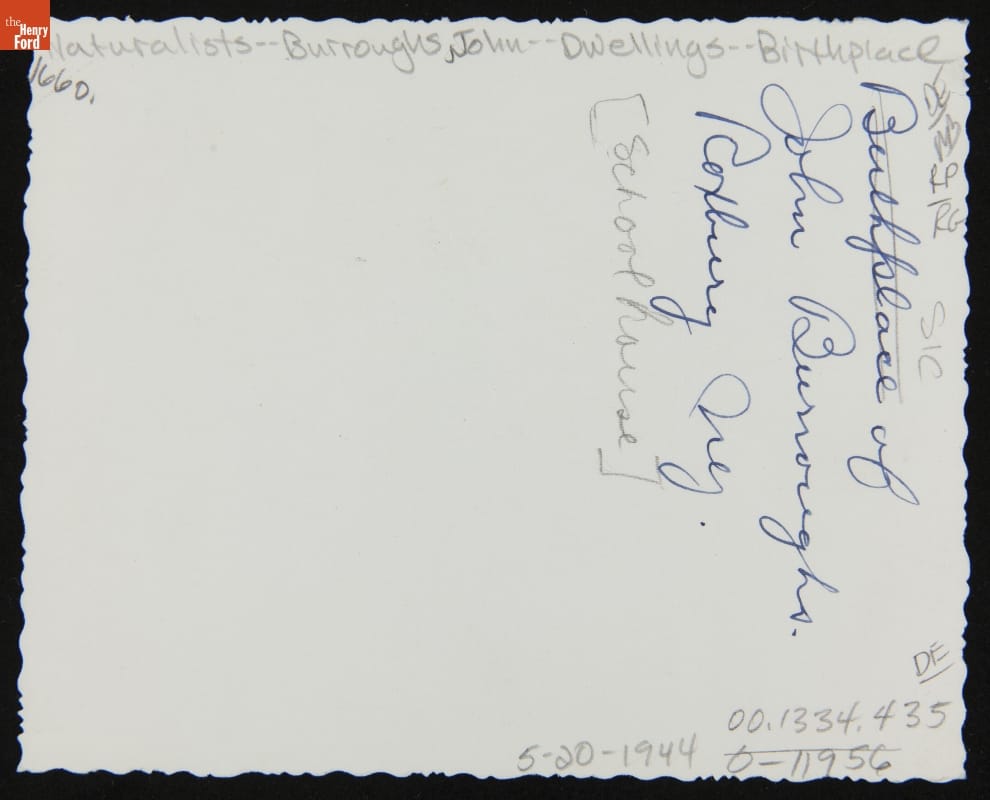 the Henry Ford
Naturalists--Burroughs, John--Dwellings--Birthplace
1660.
Birthplace of
John Burroughs.
Roxbury NY.
[Schoolhouse]
SIC
DE
00.1334.435
5-20-1944
0-11956